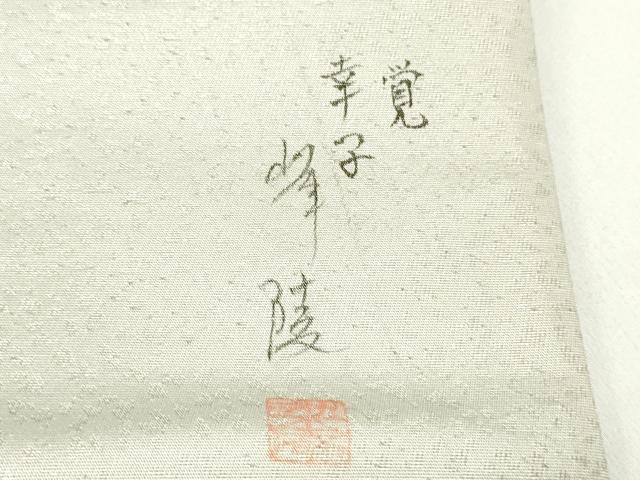 覚
幸子
峰陵